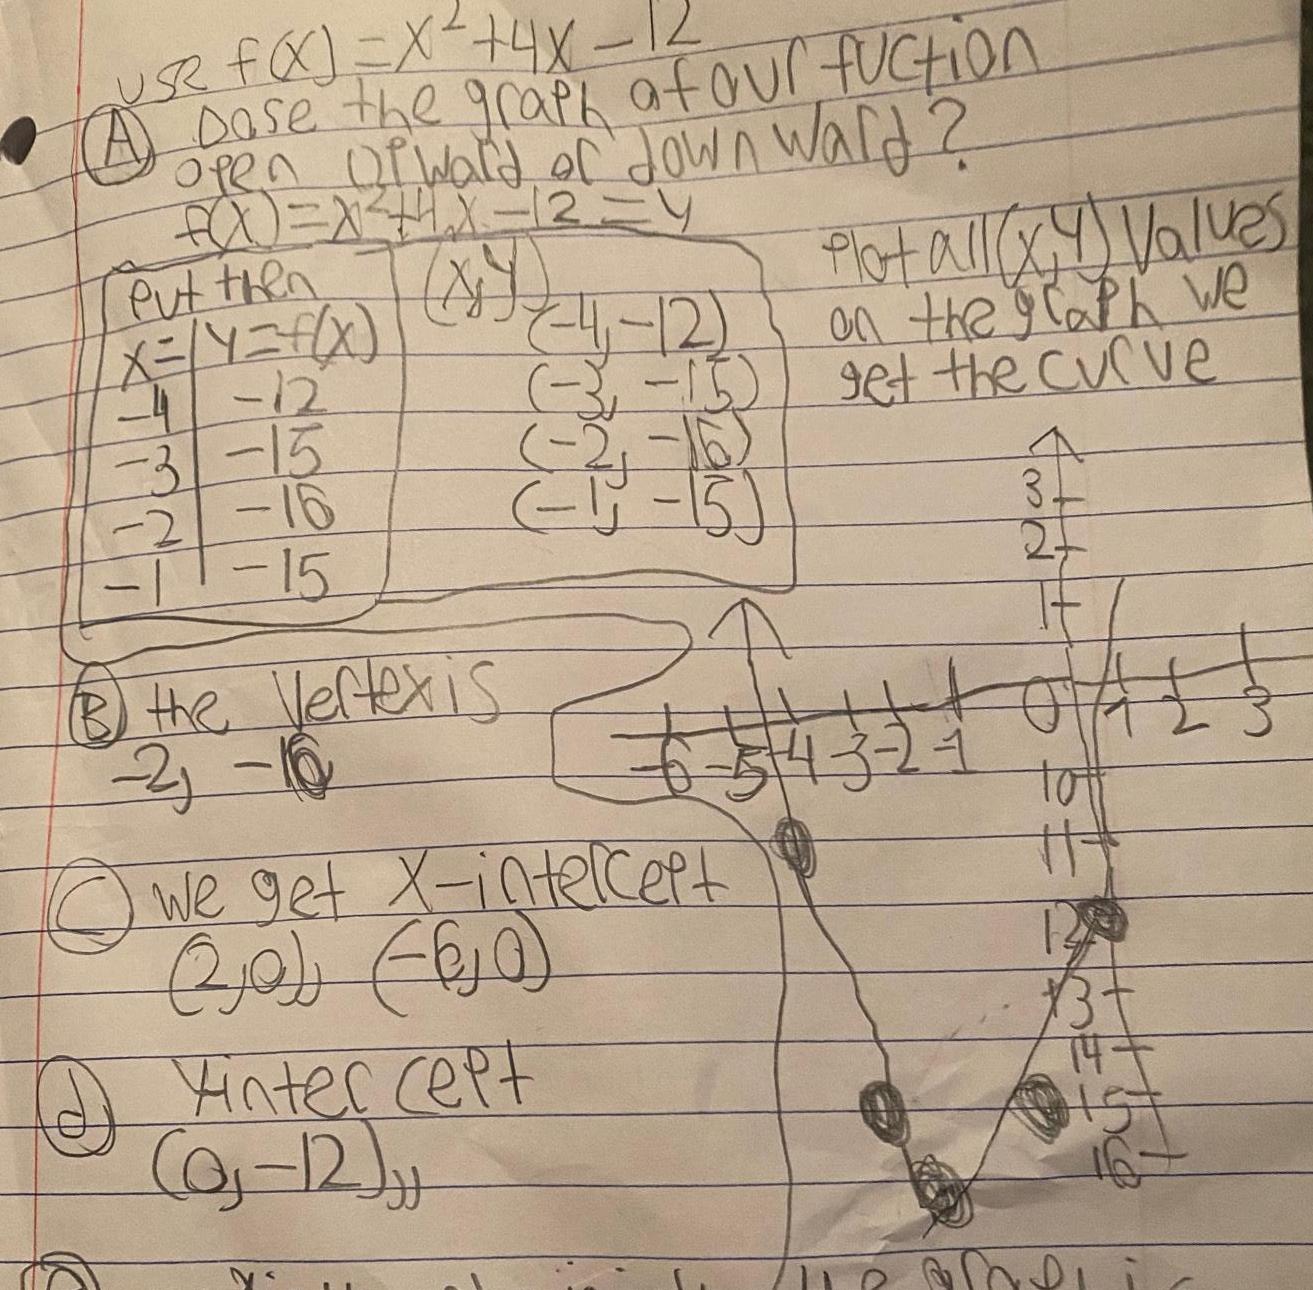 use f(x) = x² + 4x - 12
A Dose the graph of our fuction
open upward or down ward?
f(x) = x² + 4x - 12 = y
put then
x= | y = f(x)
-4 -12
-3 -15
-2 -16
-1 -15
(x, y)
(-4, -12)
(-3, -15)
(-2, -16)
(-1, -15)
Plot all (x, y) Values
on the graph we
get the curve
3
2
1
-6 -5 -4 -3 -2 -1 0 1 2 3
10
11
12
13
14
15
16
B the Vertex is
-2, -16
C we get x-intercept
(2,0),, (-6,0)
d Yinter cept
(0, -12),,